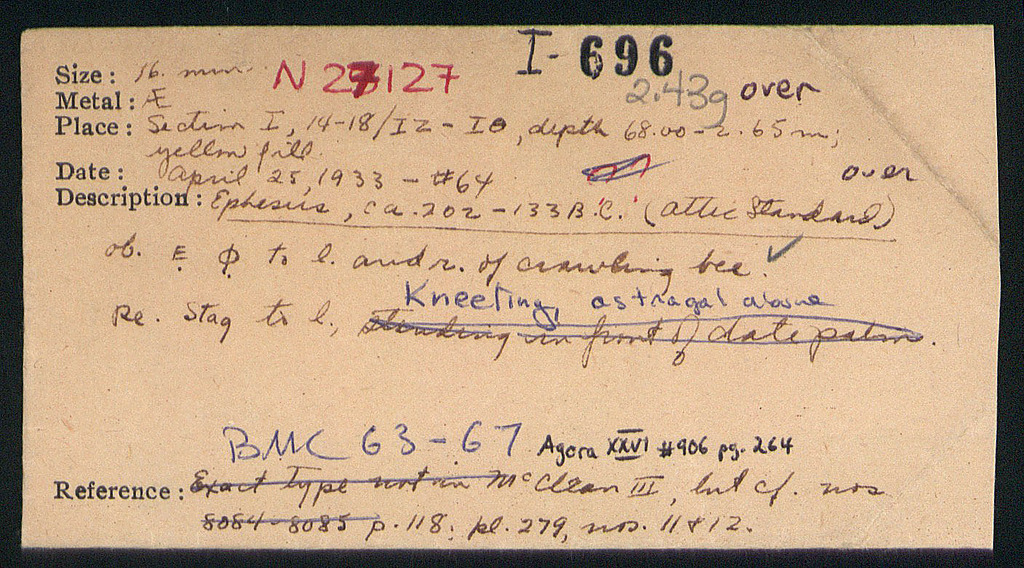 I-696
Size: 16. mm. N 27127 2.43g over
Metal: Æ
Place: Section I, 14-18/IZ - IΘ, depth 68.00 - 2.65m;
yellow fill.
Date: April 25, 1933 - #64 over
Description: Ephesus, ca. 202 - 133 B.C. (Attic Standard)
ob. E Φ to l. and r. of crawling bee. ✓
Kneeling, astragal above
Re. Stag to l., standing in front of date palm.
BMC 63-67 Agora XXVI #906 pg. 264
Reference: Exact type not in McClean III, but cf. nos
8084-8085 p. 118, pl. 279, nos. 11 & 12.